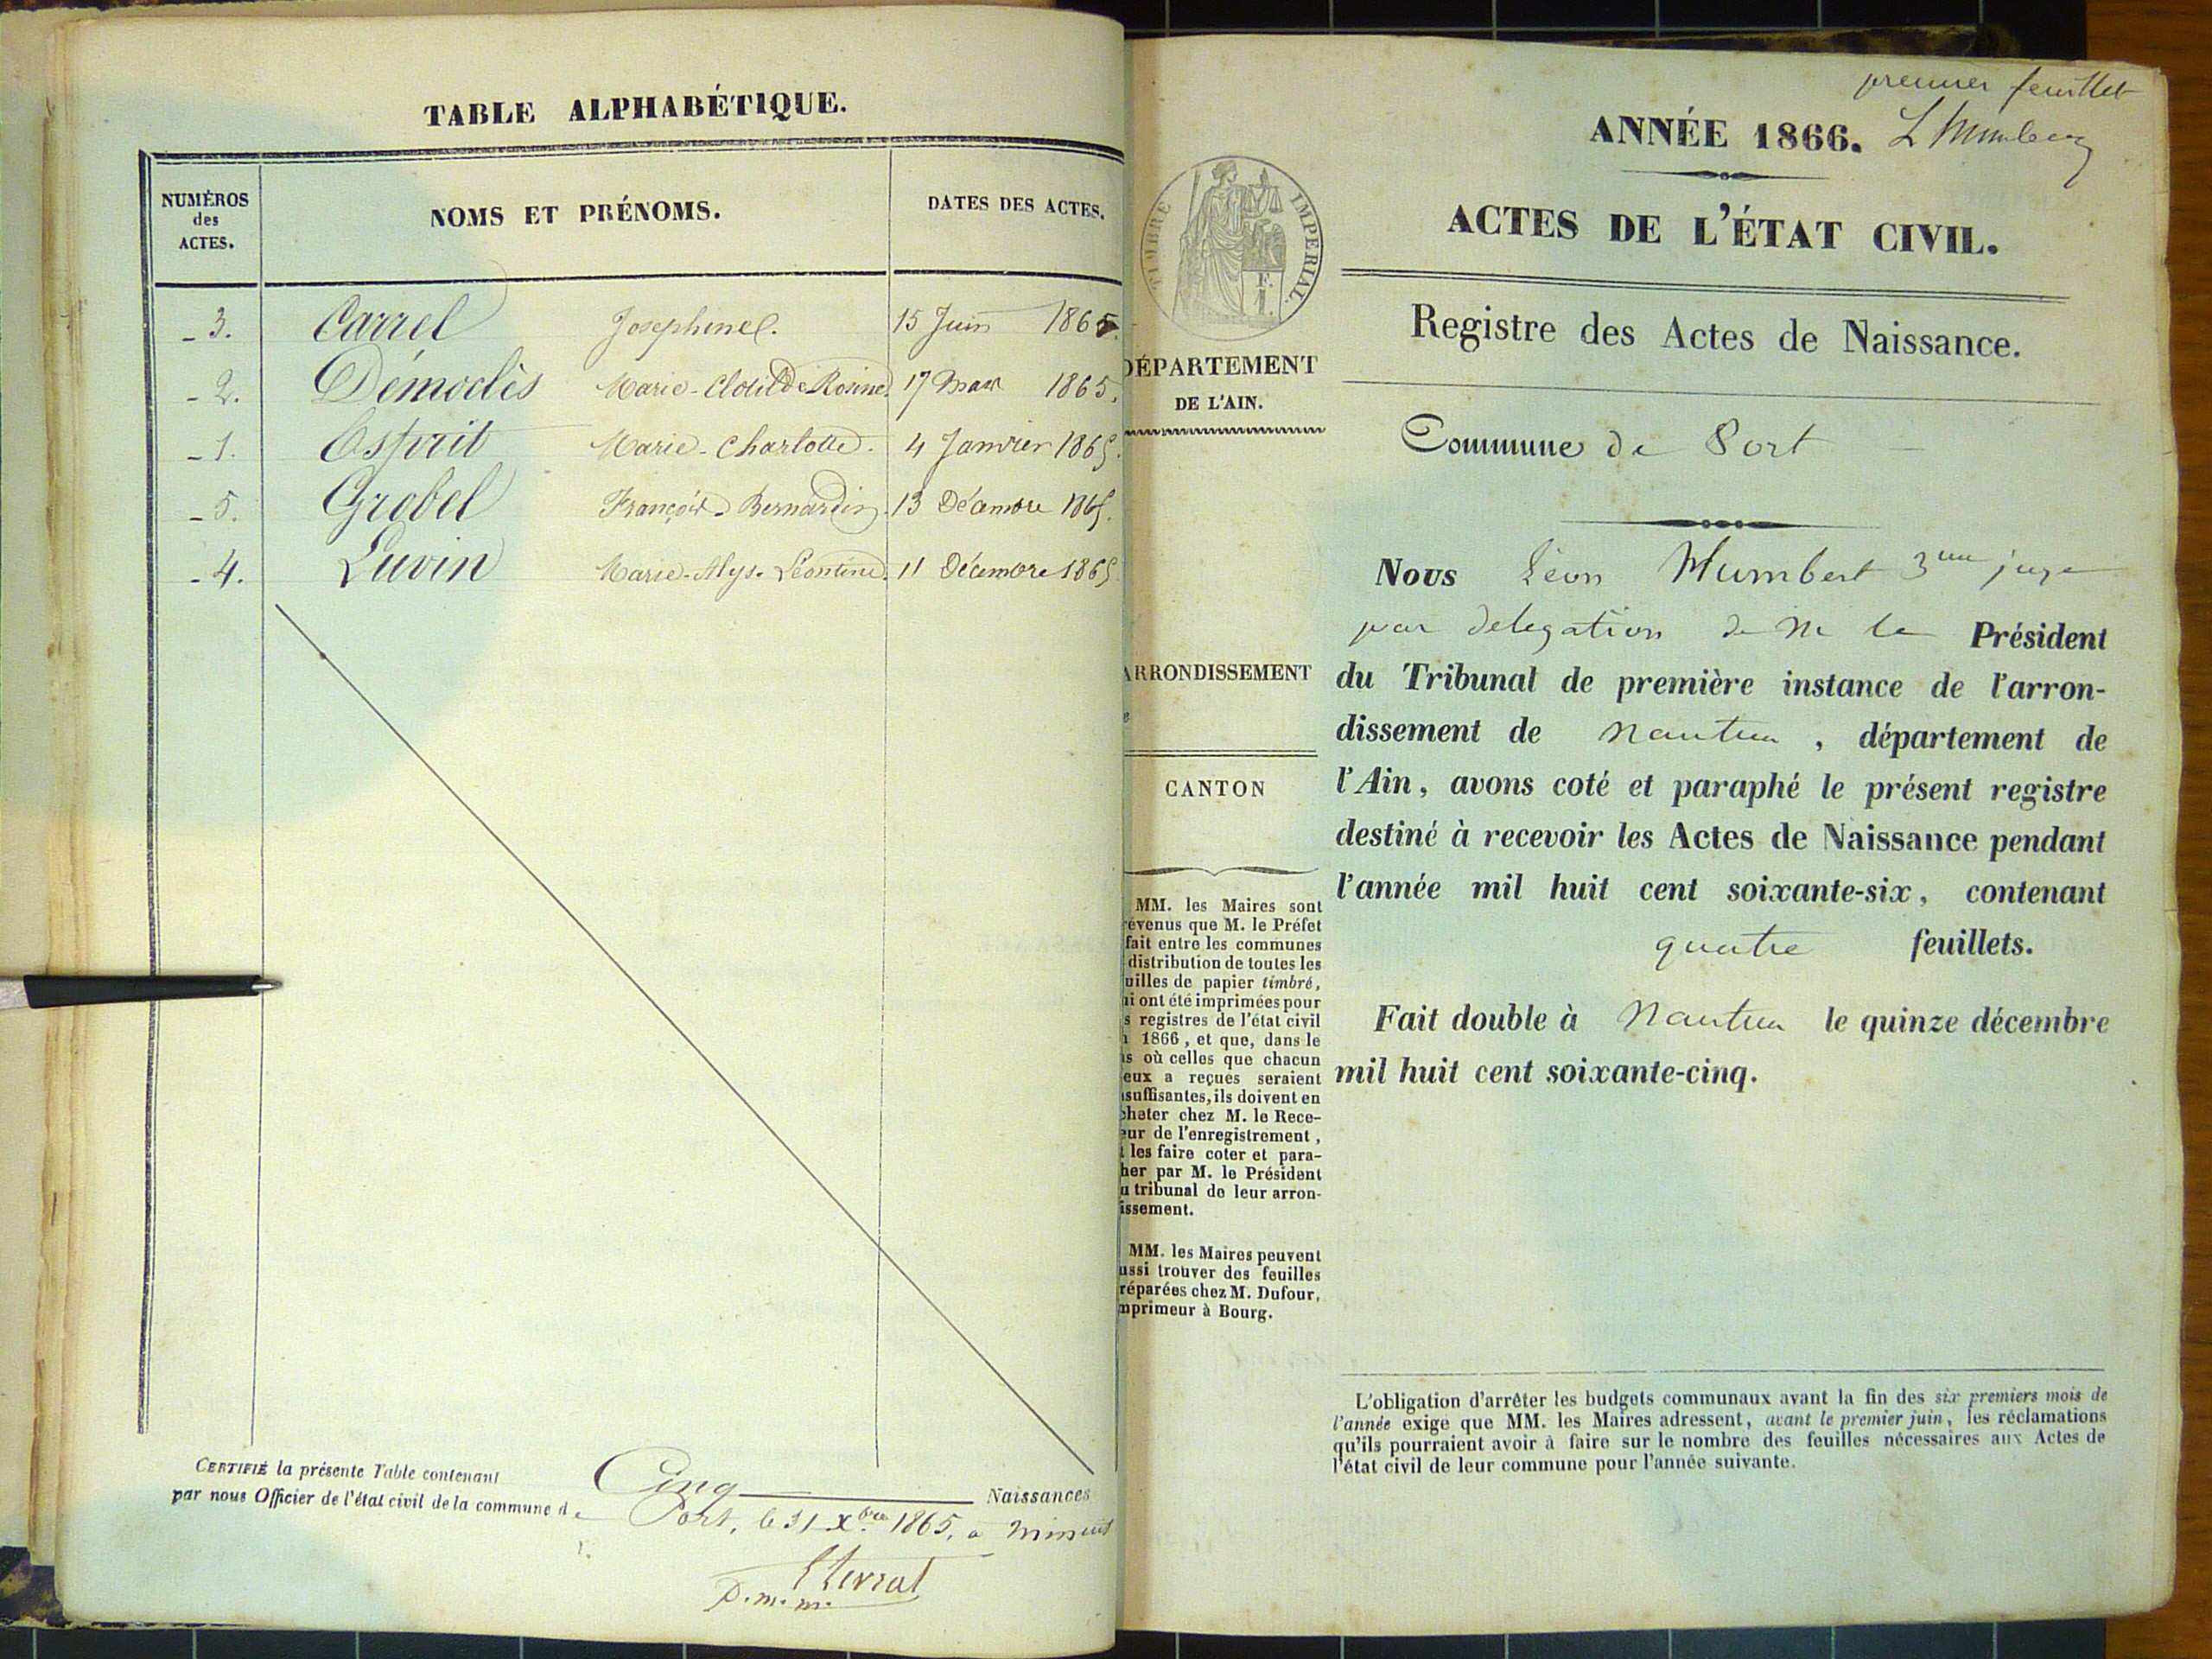 TABLE ALPHABÉTIQUE.
NUMÉROS
des
ACTES.
NOMS ET PRÉNOMS.
DATES DES ACTES.
_ 3. Carrel Josephine. 15 Juin 1865
_ 2. Démoclès Marie-Clotilde Rosine. 17 Mars 1865.
_ 1. Esprit Marie-Charlotte. 4 Janvier 1865.
_ 5. Grobel François Bernardin. 13 Décembre 1865.
_ 4. Luvin Marie-Alys-Léontine. 11 Décembre 1865.
CERTIFIÉ la présente Table contenant Cinq Naissances
par nous Officier de l'état civil de la commune de Port, le 31 Xbre 1865, a minuit
D.m.m.
premier feuillet
ANNÉE 1866. L Humbert
ACTES DE L'ÉTAT CIVIL.
TIMBRE IMPERIAL.
Registre des Actes de Naissance.
DÉPARTEMENT
DE L'AIN.
Commune de Port
Nous Léon Humbert 3eme juge
par delegation de M le Président
du Tribunal de première instance de l'arron-
dissement de Nantua, département de
l'Ain, avons coté et paraphé le présent registre
destiné à recevoir les Actes de Naissance pendant
l'année mil huit cent soixante-six, contenant
quatre feuillets.
Fait double à Nantua le quinze décembre
mil huit cent soixante-cinq.
ARRONDISSEMENT
e
CANTON
MM. les Maires sont
révenus que M. le Préfet
fait entre les communes
distribution de toutes les
uilles de papier timbré,
ui ont été imprimées pour
s registres de l'état civil
1866, et que, dans le
as où celles que chacun
eux a reçues seraient
nsuffisantes, ils doivent en
cheter chez M. le Rece-
eur de l'enregistrement,
t les faire coter et para-
her par M. le Président
u tribunal de leur arron-
issement.
MM. les Maires peuvent
ussi trouver des feuilles
réparées chez M. Dufour,
mprimeur à Bourg.
L'obligation d'arrêter les budgets communaux avant la fin des six premiers mois de
l'année exige que MM. les Maires adressent, avant le premier juin, les réclamations
qu'ils pourraient avoir à faire sur le nombre des feuilles nécessaires aux Actes de
l'état civil de leur commune pour l'année suivante.